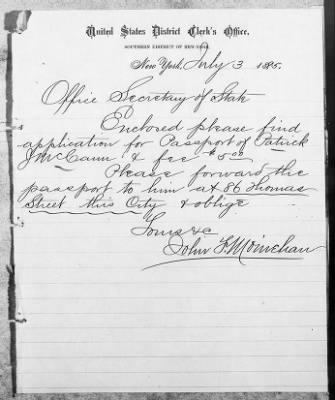 United States District Clerk's Office,
SOUTHERN DISTRICT OF NEW-YORK.
New York, July 3 1885.
Office Secretary of State
Enclosed please find
application for Passport of Patrick
J McCann & fee $5.00
Please forward the
passport to him at 86 Thomas
Street this City & oblige
Yours &c
John F. Moinehan